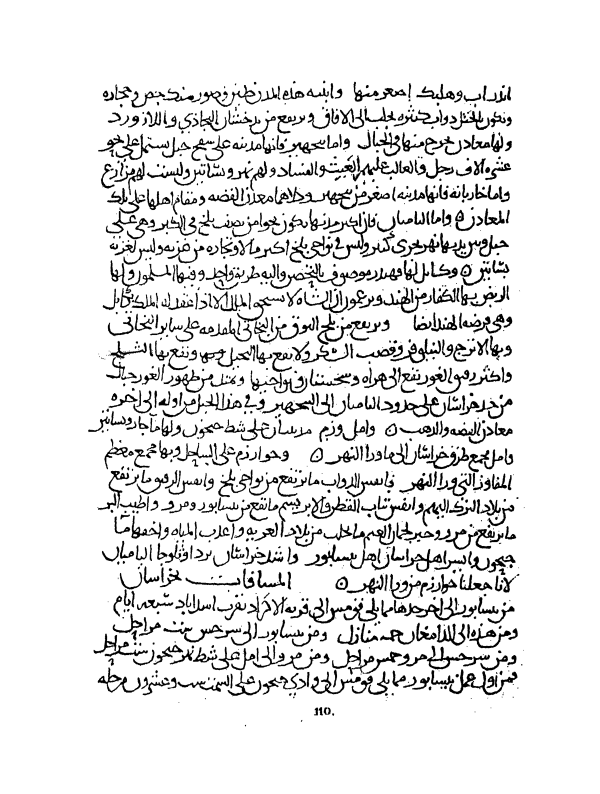 اندراب وهلبك اصغر منها وابنيه هذه المدن طين وقصور من جص وحجاره
وتحول الختل دواب كثيره تجلب الى الافاق ويرتفع من بذخشان البجاذي واللازورد
ولها معادن تخرج منها في الجبال واما بنجهير فانها مدينه على سفح جبل تشتمل على نحو
عشره الاف رجل والغالب عليهم العيث والفساد ولهم نهر وبساتين وليست لهم مزارع
واما جاربايه فانها مدينه اصغر من بنجهير وكلاهما معدن الفضه ومقام اهلها على تلك
المعادن ۞ واما الباميان فان اكبر مدنها يكون نحوا من نصف بلخ في الكبر وهي على
جبل وبين يديها نهر يجري كبير وليس في نواحي بلخ اكبر مالا وتجاره من غزنه وليس لغزنه
بساتين ۞ وكابل لها قهندر موصوف بالتحصن واليه طريق واحد وفيها المسلمون ولها
ربض بها الكفار من الهند ويزعمون ان الشاه لا يستحق الملك الا اذا عقد له الملك بكابل
وهي فرضه الهند ايضا ويرتفع من بلخ النوق من البخاتي المقدمه على سائر البخاتي
وبها الاترج والنيلوفر وقصب السكر ولا يقع بها النخيل ويقع بها الثلج
واكثر رقيق الغور يقع الى هراه وسجستان ونواحيها ويمتد من ظهر الغور جبال
من حد خراسان على حدود الباميان الى البنجهير وفي هذا الجبل من اوله الى اخره
معادن الفضه والذهب ۞ وامل وزم مدينتان على شط جيحون ولهما ماء جار وبساتين
وامل مجمع طرق خراسان الى ما ورا النهر ۞ وخوارزم على الساحل وبها مجمع معظم
المفاوز التي ورا النهر وانفس الدواب ما يرتفع من نواحي بلخ وانفس الرقيق ما يرتفع
من بلاد الترك اليهم وانفس ثياب القطن والابريسم ما يقع من نيسابور ومرو واطيب البز
ما يرتفع من مرو وخير لحمان الغنم ما تجلب من بلاد الغزيه واعذب المياه واخفها ما
جيحون وايسر اهل خراسان اهل نيسابور واشد خراسان بردا وثلوجا الباميان
لانا جعلنا خوارزم من ورا النهر ۞ المسافات بخراسان
من نيسابور الى اخر حدها مما يلي قومس الى قريه الاكراد بقرب اسداباد سبعه ايام
ومن هذه الى الدامغان خمسه منازل ومن نيسابور الى سرخس ست مراحل
ومن سرخس الى مرو خمس مراحل ومن مرو الى امل على شط نهر جيحون ست مراحل
فمن اول عمل نيسابور مما يلي قومس الى وادي جيحون على السمت ست وعشرون مرحله
110.